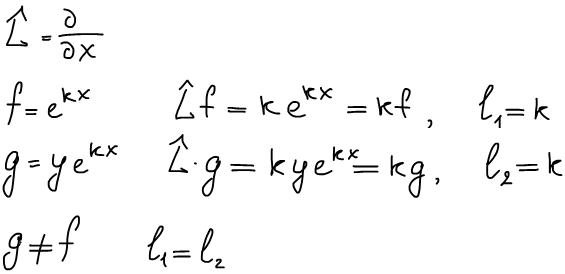 L̂ = ∂/∂x
f = e^{kx} L̂f = k e^{kx} = kf , l₁ = k
g = y e^{kx} L̂·g = k y e^{kx} = kg , l₂ = k
g ≠ f l₁ = l₂